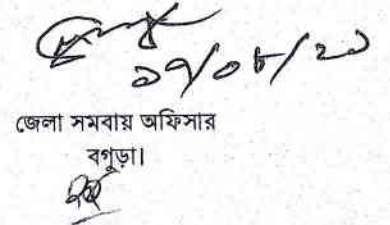 ১৭/০৮/২১
জেলা সমবায় অফিসার
বগুড়া।